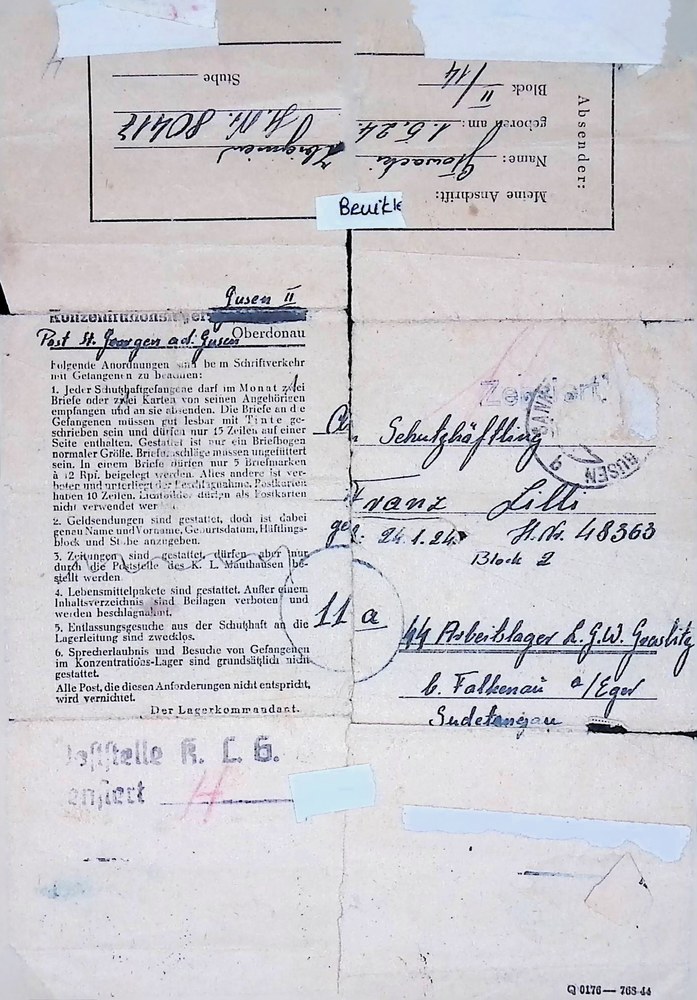 Absender:
Meine Anschrift:
Name:
geboren am: 1.5.24.
H.Nr. 80417
Block II/14
Stube
Gusen II
Konzentrationslager
Post St. Georgen a.d. Gusen Oberdonau
Folgende Anordnungen sind beim Schriftverkehr
mit Gefangenen zu beachten:
1. Jeder Schutzhaftgefangene darf im Monat zwei
Briefe oder zwei Karten von seinen Angehörigen
empfangen und an sie absenden. Die Briefe an die
Gefangenen müssen gut lesbar mit Tinte ge-
schrieben sein und dürfen nur 15 Zeilen auf einer
Seite enthalten. Gestattet ist nur ein Briefbogen
normaler Größe. Briefumschläge müssen ungefüttert
sein. In einem Briefe dürfen nur 5 Briefmarken
à 12 Rpf. beigelegt werden. Alles andere ist ver-
boten und unterliegt der Beschlagnahme. Postkarten
haben 10 Zeilen. Lichtbilder dürfen als Postkarten
nicht verwendet wer
2. Geldsendungen sind gestattet, doch ist dabei
genau Name und Vorname, Geburtsdatum, Häftlings-
block und Stube anzugeben.
3. Zeitungen sind gestattet, dürfen aber nur
durch die Poststelle des K. L. Mauthausen be-
stellt werden.
4. Lebensmittelpakete sind gestattet. Außer einem
Inhaltsverzeichnis sind Beilagen verboten und
werden beschlagnahmt.
5. Entlassungsgesuche aus der Schutzhaft an die
Lagerleitung sind zwecklos.
6. Sprecherlaubnis und Besuche von Gefangenen
im Konzentrations-Lager sind grundsätzlich nicht
gestattet.
Alle Post, die diesen Anforderungen nicht entspricht,
wird vernichtet.
Der Lagerkommandant.
GUSEN
9
An Schutzhäftling
Franz Lilli
geb: 24.1.24. H.Nr. 48363
Block 2
11 a
SS Arbeitslager L.G.W. Graslitz
b. Falkenau a/Eger
Sudetengau
Poststelle K. L. G.
zensiert
Q 0176 — 768 44